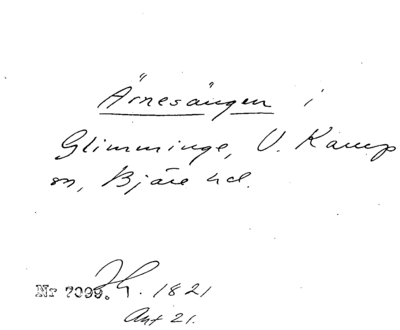 Ärnesången i
Glimminge, V. Karup
sn, Bjäre hd.
Nr 7099. H. 1821
Ant 21.